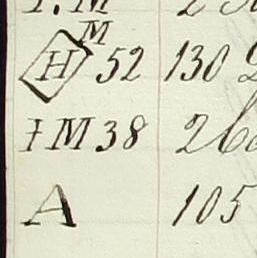 M
H 52 130
‡M 38 26
A 105